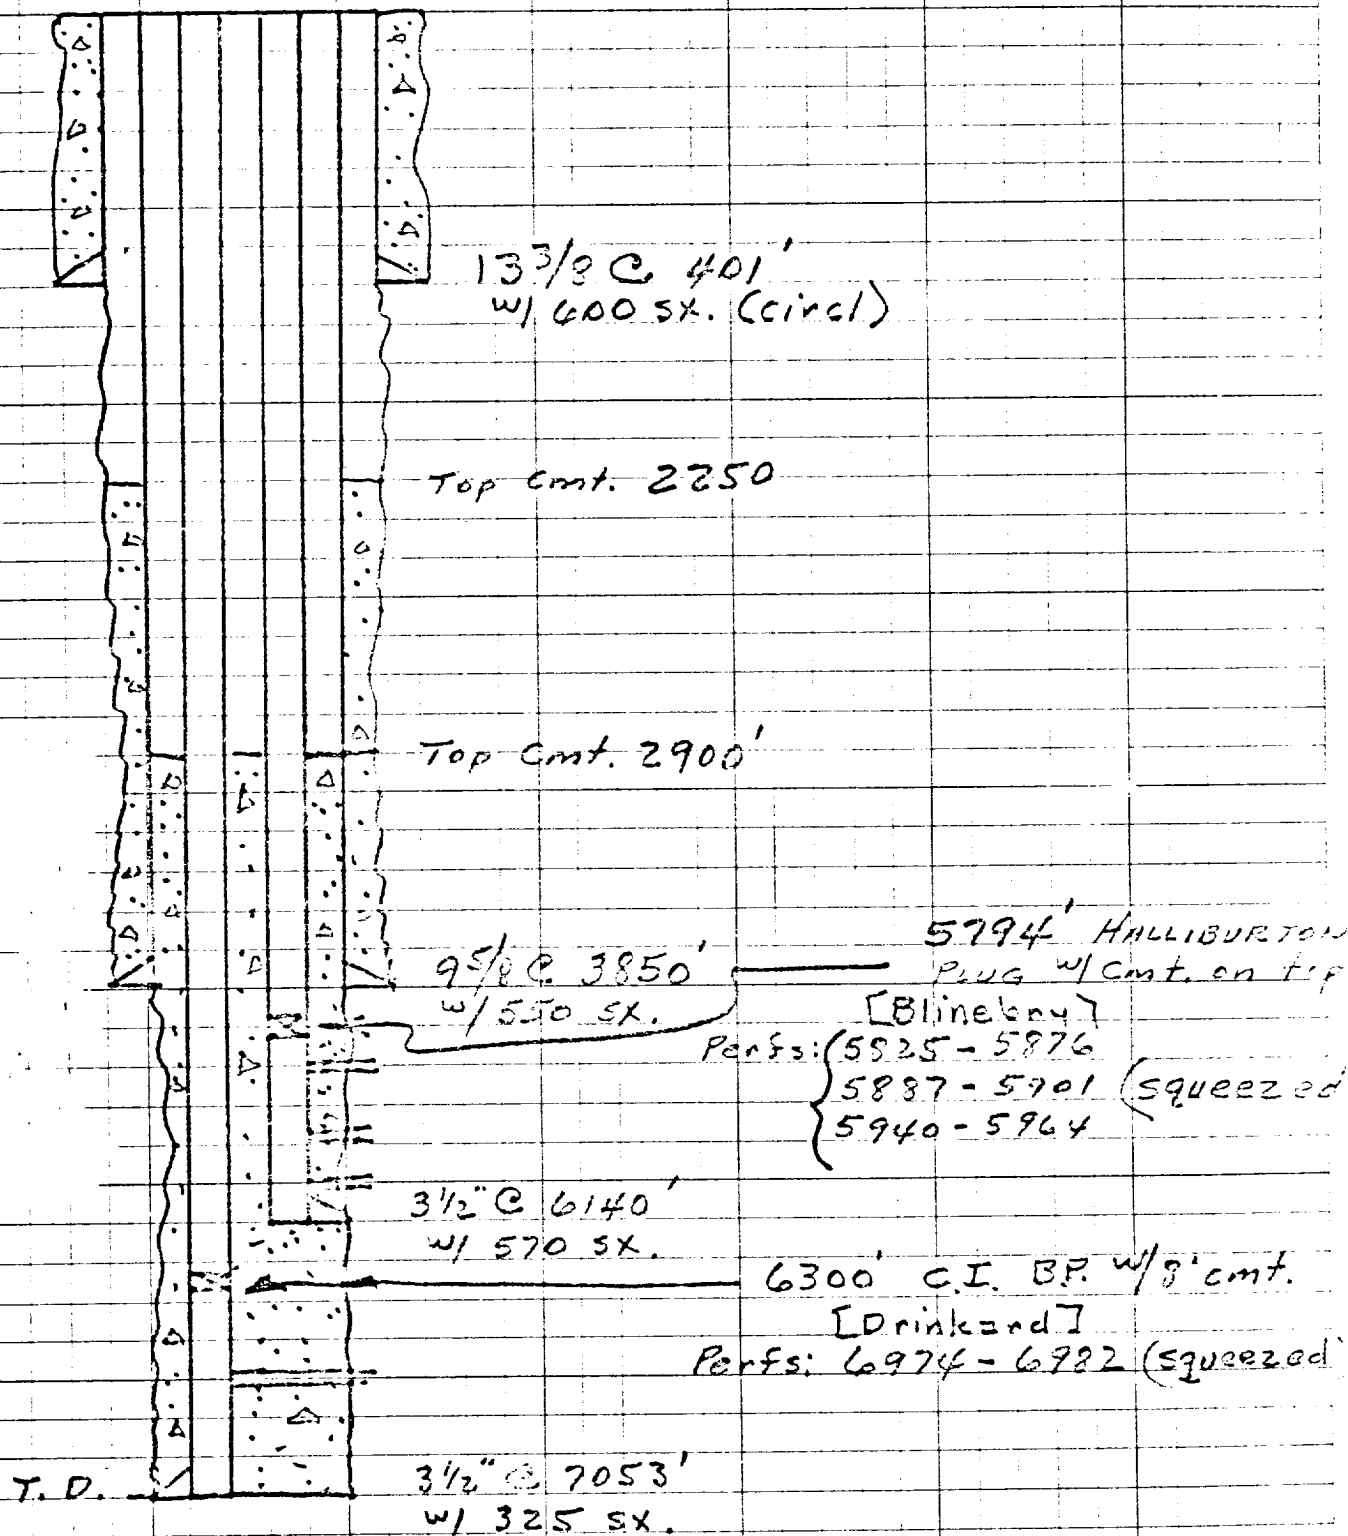 13 3/8 @ 401'
w/ 600 sx. (circl)
Top Cmt. 2250
Top Cmt. 2900'
9 5/8 @ 3850'
w/ 550 sx.
5794' HALLIBURTON
PLUG w/ Cmt. on top
[Blinebry]
Perfs: 5825 - 5876
5887 - 5901 (squeezed
5940 - 5964
3 1/2" @ 6140'
w/ 570 sx.
6300' C.I. B.P. w/ 8' cmt.
[Drinkard]
Perfs: 6974 - 6982 (squeezed
T.D.
3 1/2" @ 7053'
w/ 325 sx.